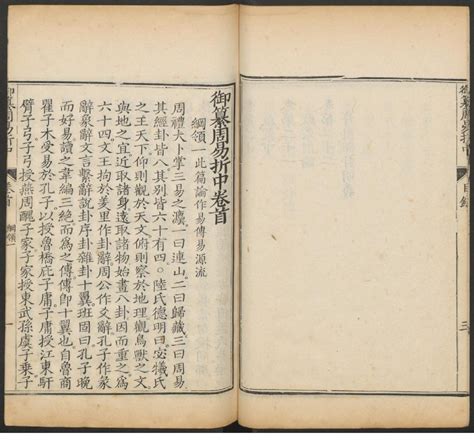 御纂周易折中
目錄
三
御纂周易折中卷首
綱領一此篇論作易傳易源流
周禮大卜掌三易之灋一曰連山二曰歸藏三曰周易
其經卦皆八其別皆六十有四○陸氏德明曰宓犧氏
之王天下仰則觀於天文俯則察於地理觀鳥獸之文
與地之宜近取諸身遠取諸物始畫八卦因而重之為
六十四文王拘於羑里作卦辭周公作爻辭孔子作彖
辭象辭文言繫辭說卦序卦雜卦十翼班固曰孔子晚
而好易讀之韋編三絕而為之傳傳即十翼也自魯商
瞿子木受易於孔子以授魯橋庇子庸子庸授江東馯
臂子弓子弓授燕周醜子家子家授東武孫虞子乘子
御纂周易折中
卷首
綱領一
一